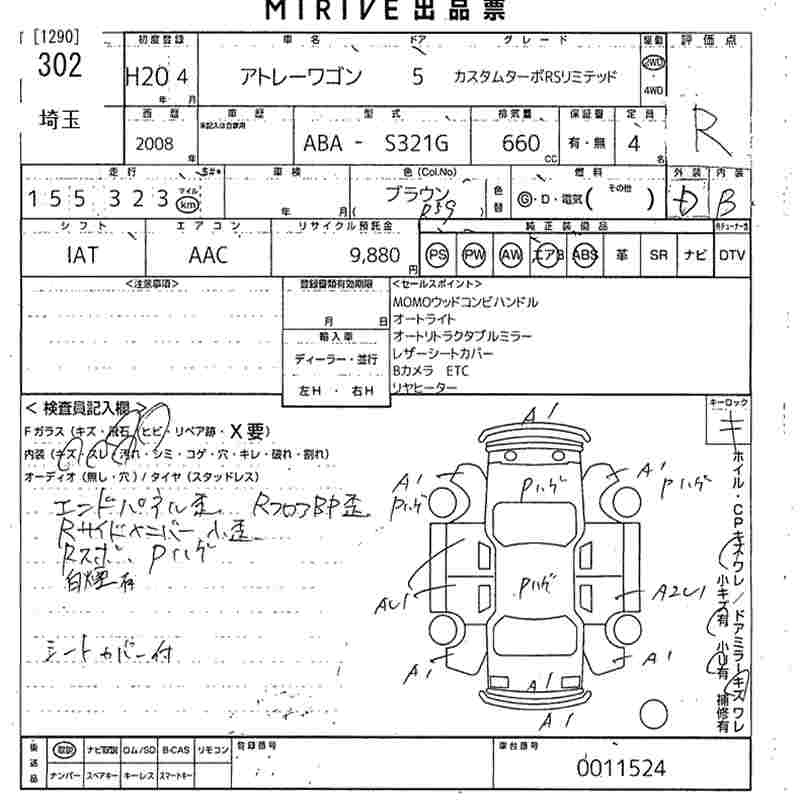 MIRIVE出品票
[1290]
302
埼玉
初度登録 車名 ドア グレード 駆動 評価点
H20 4 アトレーワゴン 5 カスタムターボRSリミテッド 2WD ・ 4WD R
年 月
西暦 車歴 型式 排気量 保証書 定員
2008 未記入は自家用 ABA - S321G 660 有・無 4
年 CC 名
走行 S#* 車検 色 (Col.No) 燃料 外装 内装
155 323 マイル km 年 月 ( ブラウン 色替 G・D・電気( その他 ) D B
シフト エアコン リサイクル預託金 純正装備品
IAT AAC 9,880 円 PS PW AW エアB ABS 革 SR ナビ DTV
<注意事項> 登録書類有効期限 <セールスポイント>
月 日
MOMOウッドコンビハンドル
オートライト
輸入車 オートリトラクタブルミラー
ディーラー・並行 レザーシートカバー
Bカメラ ETC
左H ・ 右H リヤヒーター
<検査員記入欄> キーロック
キ
Fガラス (キズ・飛石・ヒビ・リペア跡・X要)
内装 (キズ・スレ・汚れ・シミ・コゲ・穴・キレ・破れ・割れ)
オーディオ (無し・穴) / タイヤ (スタッドレス)
エンドパネル歪 RフロアBP歪
Rサイドメンバー小歪
Rスポ、Pハゲ
白煙有
シートカバー付
A1
A1 Pハゲ A1
Pハゲ Pハゲ
Pハゲ
AU1 A2U1
A1 A1
A1
A1
ホイル・CPキズワレ / ドアミラーキズワレ
小キズ有 小U有 補修有
後送品 取説 ナビ取説 ロム/SD B-CAS リモコン 登録番号 車台番号
ナンバー スペアキー キーレス スマートキー 0011524